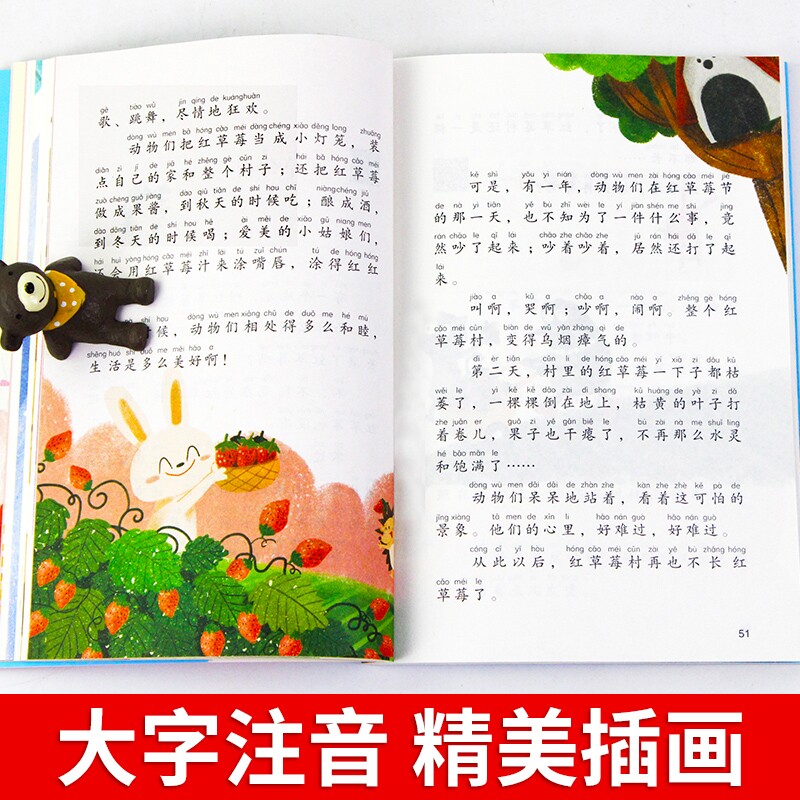 gē tiào wǔ jìn qíng de kuánghuān
歌、跳舞，尽情地狂欢。
dòng wù men bǎ hóng cǎo méi dàng chéng xiǎo dēng lóng zhuāng
动物们把红草莓当成小灯笼，装
diǎn zì jǐ de jiā hé zhěng gè cūn zi hái bǎ hóng cǎo méi
点自己的家和整个村子；还把红草莓
zuò chéng guǒ jiàng dào qiū tiān de shí hou chī niàng chéng jiǔ
做成果酱，到秋天的时候吃；酿成酒，
dào dōng tiān de shí hou hē ài měi de xiǎo gū niang men
到冬天的时候喝；爱美的小姑娘们，
hái huì yòng hóng cǎo méi zhī lái tú zuǐ chún tú de hóng hóng
还会用红草莓汁来涂嘴唇，涂得红红
hou dòng wù men xiāng chǔ de duō me hé mù
候，动物们相处得多么和睦，
shēng huó shì duō me měi hǎo a
生活是多么美好啊！
kě shì yǒu yì nián dòng wù men zài hóng cǎo méi jié
可是，有一年，动物们在红草莓节
de nà yì tiān yě bù zhī wèi le yí jiàn shén me shì jìng
的那一天，也不知为了一件什么事，竟
rán chǎo le qǐ lái chǎo zhe chǎo zhe jū rán hái dǎ le qǐ
然吵了起来；吵着吵着，居然还打了起
lái
来。
jiào a kū a chǎo a nào a zhěng gè hóng
叫啊，哭啊；吵啊，闹啊。整个红
cǎo méi cūn biàn de wū yān zhàng qì de
草莓村，变得乌烟瘴气的。
dì èr tiān cūn lǐ de hóng cǎo méi yí xià zi dōu kū
第二天，村里的红草莓一下子都枯
wěi le yì kē kē dǎo zài dì shang kū huáng de yè zi dǎ
萎了，一棵棵倒在地上，枯黄的叶子打
zhe juǎn er guǒ zi yě gān biě le bú zài nà me shuǐ líng
着卷儿，果子也干瘪了，不再那么水灵
hé bǎo mǎn le
和饱满了……
dòng wù men dāi dāi de zhàn zhe kàn zhe zhè kě pà de
动物们呆呆地站着，看着这可怕的
jǐng xiàng tā men de xīn lǐ hǎo nán guò hǎo nán guò
景象。他们的心里，好难过，好难过。
cóng cǐ yǐ hòu hóng cǎo méi cūn zài yě bù zhǎng hóng
从此以后，红草莓村再也不长红
cǎo méi le
草莓了。
51
大字注音 精美插画